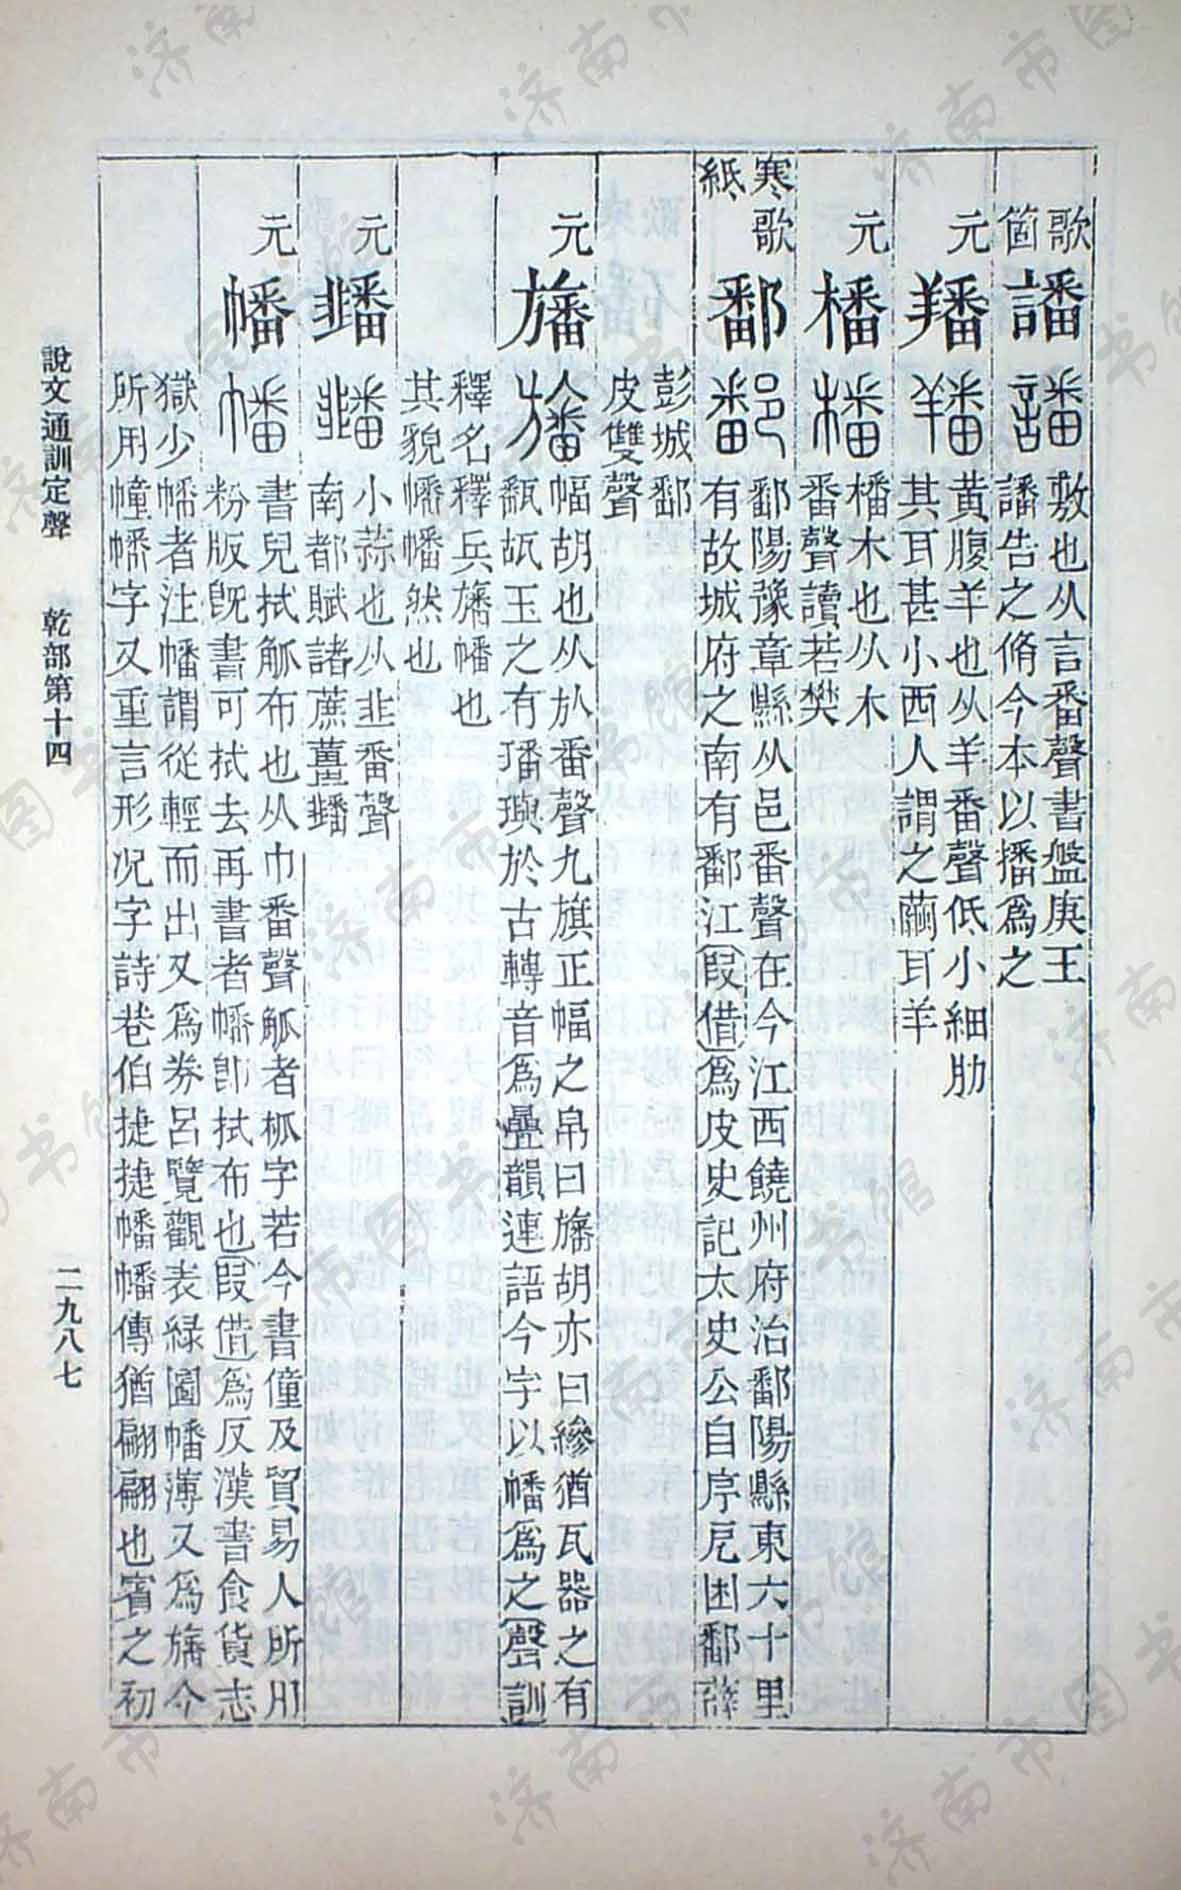 歌
箇
譒
敷也从言番聲書盤庚王
譒告之脩今本以播爲之
元
羳
黃腹羊也从羊番聲低小細肋
其耳甚小西人謂之繭耳羊
元
橎
橎木也从木
番聲讀若樊
寒歌
紙
鄱
鄱陽豫章縣从邑番聲在今江西饒州府治鄱陽縣東六十里
有故城府之南有鄱江叚借爲皮史記太史公自序戹困鄱薛
彭城鄱
皮雙聲
元
旛
幅胡也从㫃番聲九旗正幅之帛曰旛胡亦曰縿猶瓦器之有
㼼瓳玉之有璠璵於古轉音爲疊韻連語今字以幡爲之聲訓
釋名釋兵旛幡也
其貌幡幡然也
元
䪛
小蒜也从韭番聲
南都賦諸蔗薑䪛
元
幡
書兒拭觚布也从巾番聲觚者柧字若今書僮及貿易人所用
粉版旣書可拭去再書者幡卽拭布也叚借爲反漢書食貨志
獄少幡者注幡謂從輕而出又爲券呂覽觀表綠圖幡薄又爲旛今
所用幢幡字又重言形況字詩巷伯捷捷幡幡傳猶翩翩也賓之初
說文通訓定聲 乾部第十四 二九八七
济南市图书馆